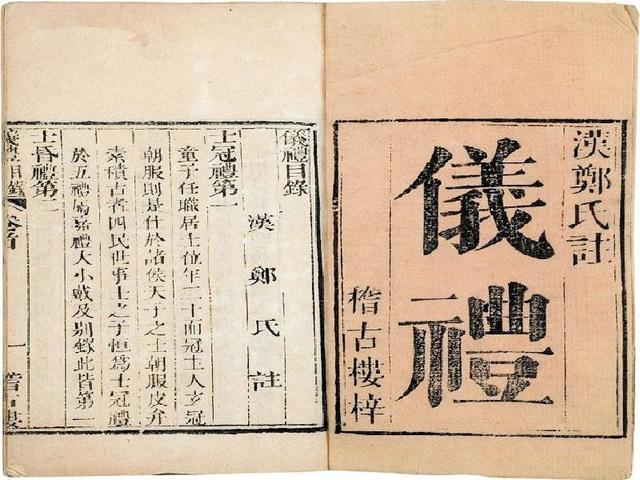 漢鄭氏註
儀禮
稽古樓梓
儀禮目錄
漢鄭氏註
士冠禮第一
童子任職居士位年二十而冠主人玄冠
朝服則是仕於諸侯天子之士朝服皮弁
素積古者四民世事士之子恒為士冠禮
於五禮屬嘉禮大小戴及别錄此皆第一
士昏禮第二
儀禮目錄
卷首
一